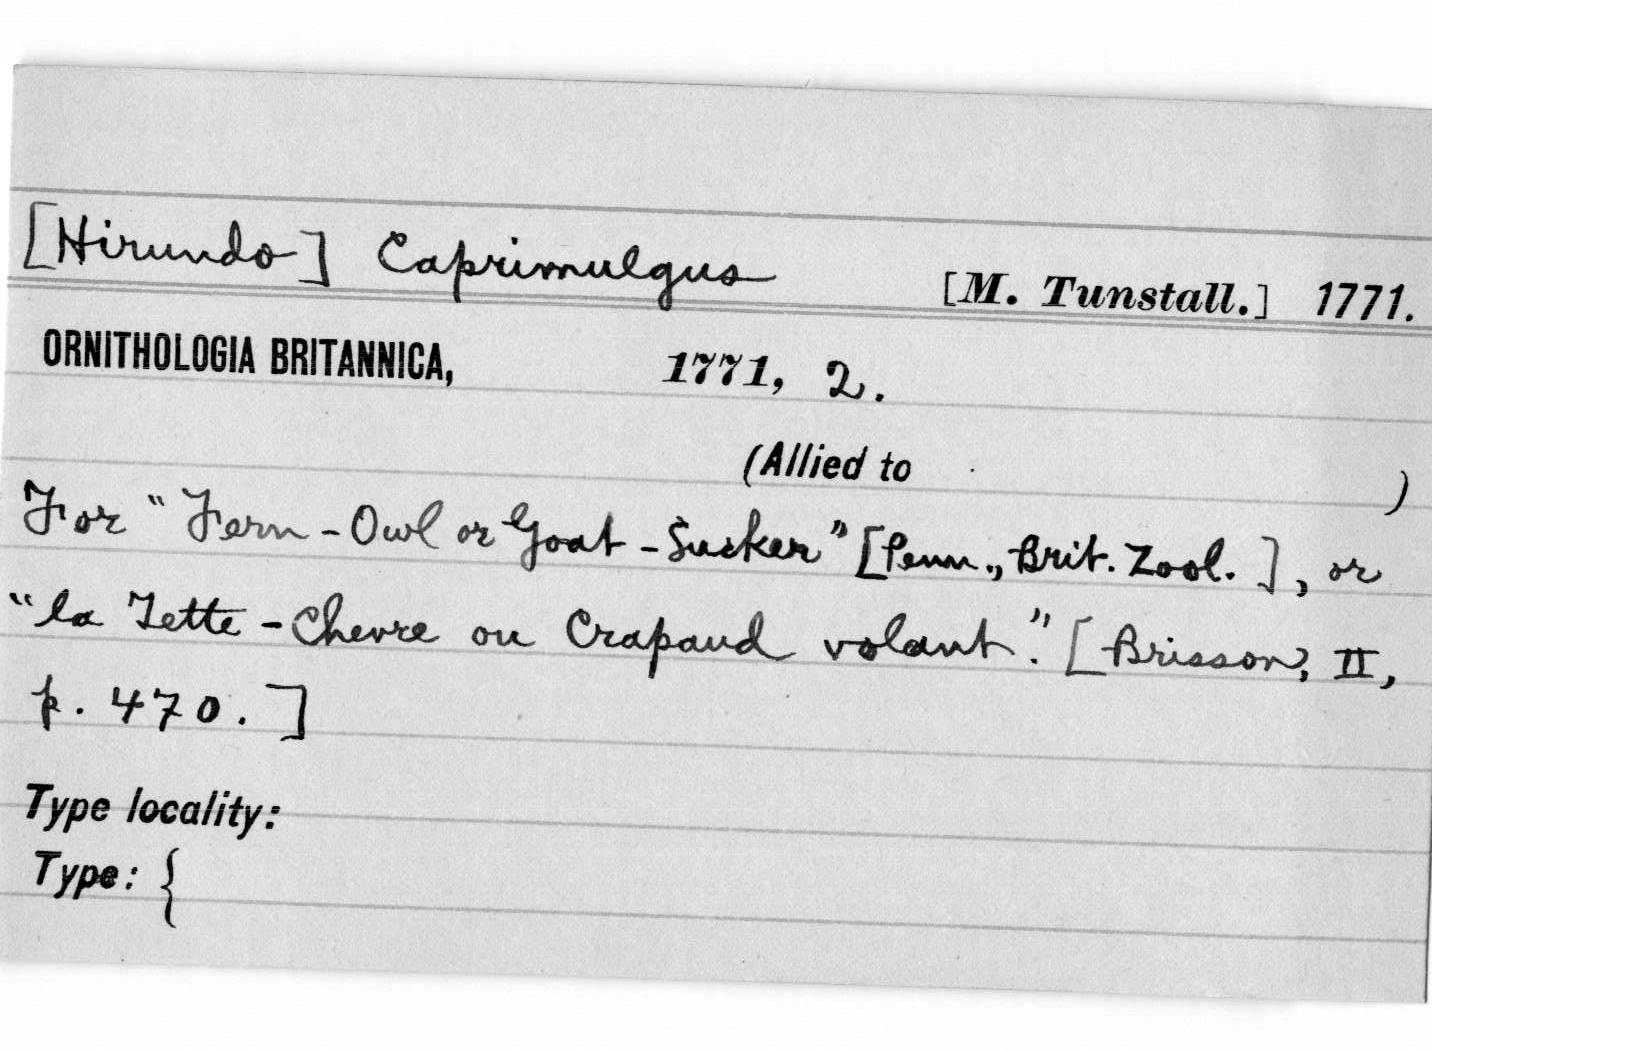 [Hirundo] Caprimulgus [M. Tunstall.] 1771.
ORNITHOLOGIA BRITANNICA, 1771, 2.
(Allied to )
For "Fern-Owl or Goat-Sucker" [Penn., Brit. Zool.], or
"la Tette-Chevre ou Crapaud volant." [Brisson, II,
p. 470.]
Type locality:
Type: {